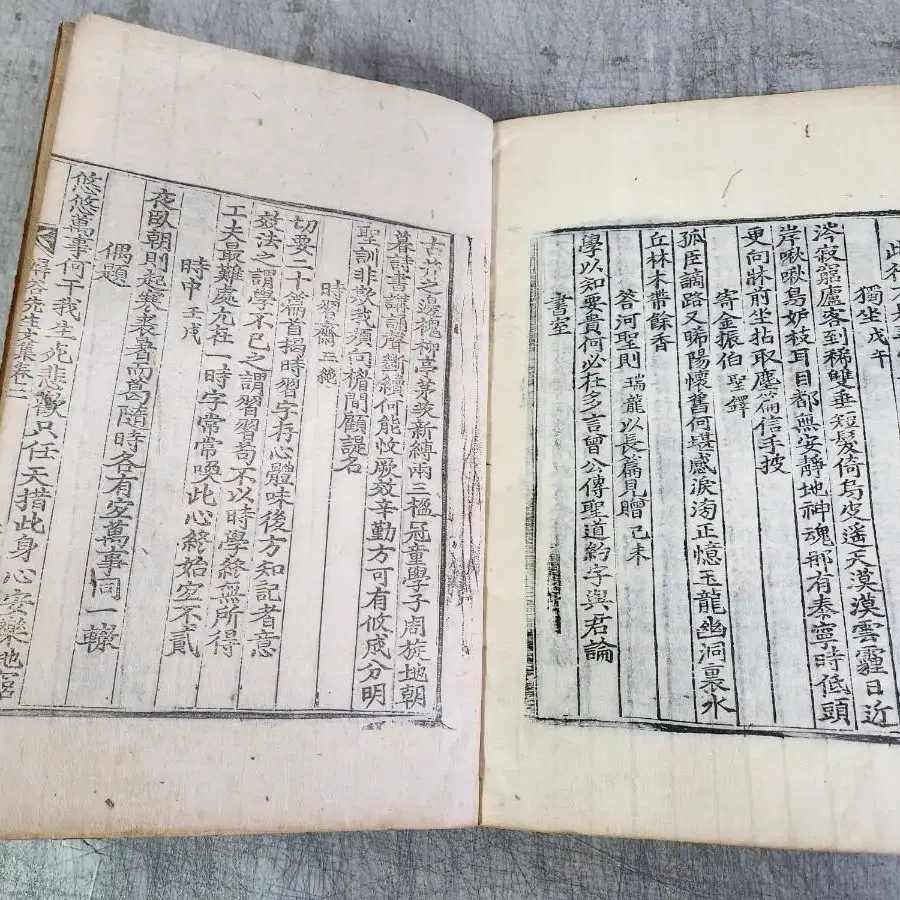 獨坐 戊午
涔寂窮廬客到稀雙垂短髮倚烏皮遙天漠漠雲霾日近
岸啾啾鳥妒枝耳目都無安靜地神魂那有泰寧時低頭
更向牀前坐拈取塵篇信手披
寄金振伯 聖鐸
孤臣謫路又睎陽懷舊何堪感淚滂正憶玉龍幽洞裏水
丘林木帶餘香
答河聖則 瑞龍 以長篇見贈 己未
學以知要貴何必在多言曾公傳聖道約字與君論
書室
古之邊槐柳亭茅茨新縛兩三楹冠童學子周旋地朝
暮詩書講誦聲斷續何能收厥效辛勤方可有攸成分明
聖訓非欺我須向楣間顧諟名
時習齋 二絶
切要二十篇首揭時習字存心體味後方知記者意
效法之謂學不已之謂習苟不以時學終無所得
工夫最難處尤在一時字常常喚此心終始宜不貳
時中 壬戌
夜臥朝則起寒裘暑而葛隨時各有宜萬事同一轍
偶題
悠悠萬事何干我生死悲歡只任天措此身心安樂地
先生文集卷二